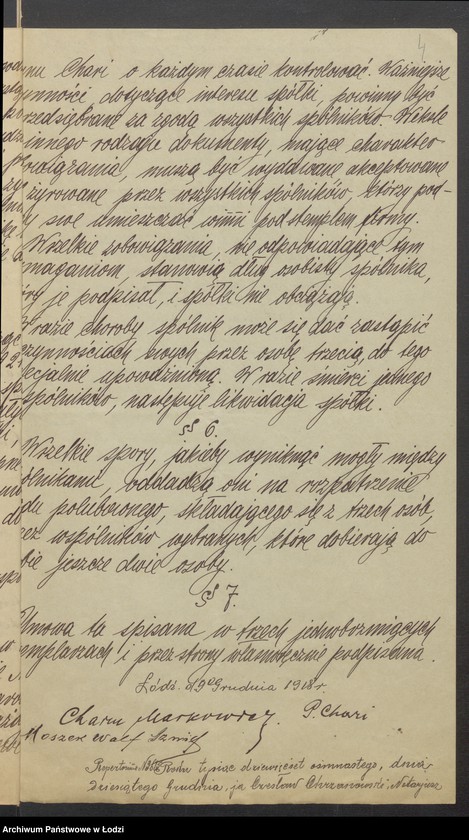 4
nu Chari o każdym czasie kontrolować. Ważniejsze
ynności dotyczące interesu spółki, powinny być
rzedsiębrane za zgodą wszystkich spólników. Weksle
innego rodzaju dokumenty, mające charakter
owiązania, muszą być wydawane akceptowane
żyrowane przez wszystkich spólników, którzy pod-
y swe umieszczać winni pod stemplem firmy.
Wszelkie zobowiązania, nie odpowiadające tym
maganiom, stanowią dług osobisty spólnika,
ry je podpisał, i spółki nie obciążają.
W razie choroby spólnik może się dać zastąpić
czynnościach swych przez osobę trzecią, do tego
ecjalnie upoważnioną. W razie śmierci jednego
spólników, następuje likwidacja spółki.
§§ 6.
Wszelkie spory, jakieby wyniknąć mogły między
ólnikami, oddadzą oni na rozpatrzenie
du polubownego, składającego się z trzech osób,
zez wspólników wybranych, które dobierają do
bie jeszcze dwie osoby.
§§ 7.
Umowa ta spisana w trzech jednobrzmiących
emplarzach i przez strony własnoręcznie podpisana.
Łódź. d. 9go Grudnia 1918 r.
Chaim Markowicz P. Chari
Moszek Wolf
Repertorium № Roku tysiąc dziewięćset osiemnastego, dnia
Dziesiątego Grudnia, ja Czesław Chrzanowski, Notarjusz
Archiwum Państwowe w Łodzi